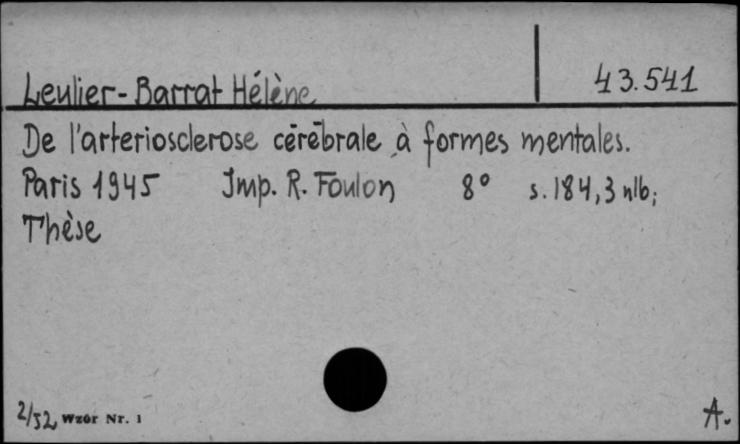 Leulier-Barrat Hélène 43.541
De l'arteriosclerose cérébrale à formes mentales.
Paris 1945 Imp. R. Foulon 8° s. 184, 3 nlb;
Thèse
2/52 Wzór Nr. 1 A.